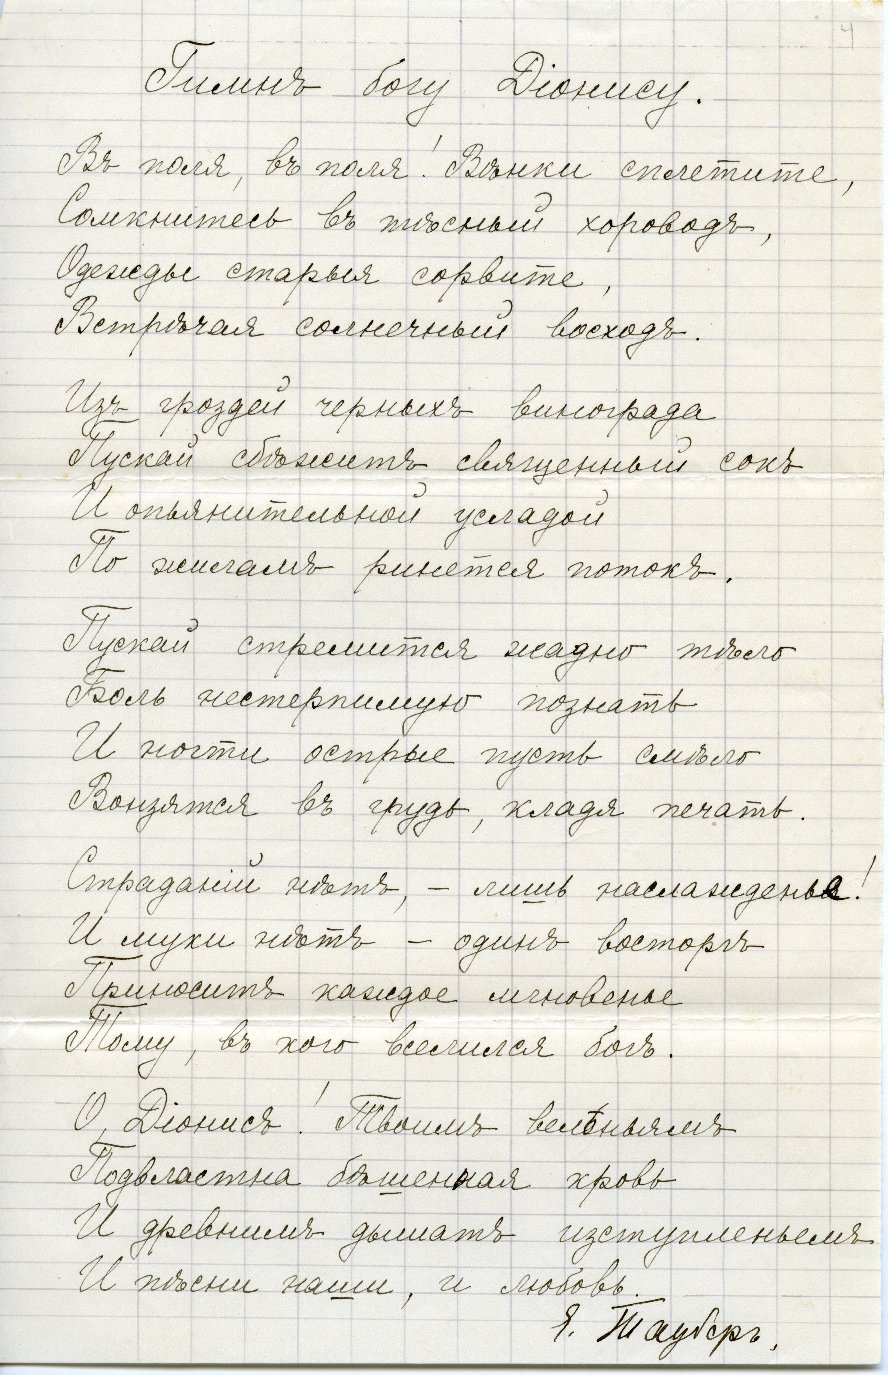 4
Гимнъ богу Діонису.
Въ поля, въ поля! Вѣнки сплетите,
Сомкнитесь въ тѣсный хороводъ,
Одежды старыя сорвите,
Встрѣчая солнечный восходъ.
Изъ гроздей черныхъ винограда
Пускай сбѣжитъ священный сокъ
И опьянительной усладой
По жиламъ ринется потокъ.
Пускай стремится жадно тѣло
Боль нестерпимую познать
И ногти острые пусть смѣло
Вонзятся въ грудь, кладя печать.
Страданій нѣтъ, – лишь наслажденье!
И муки нѣтъ – одинъ восторгъ
Приноситъ каждое мгновенье
Тому, въ кого вселился богъ.
О, Діонисъ! Твоимъ велѣньямъ
Подвластна бѣшенная кровь
И древнимъ дышатъ изступленьемъ
И пѣсни наши, и любовь.
Я. Тауберъ.